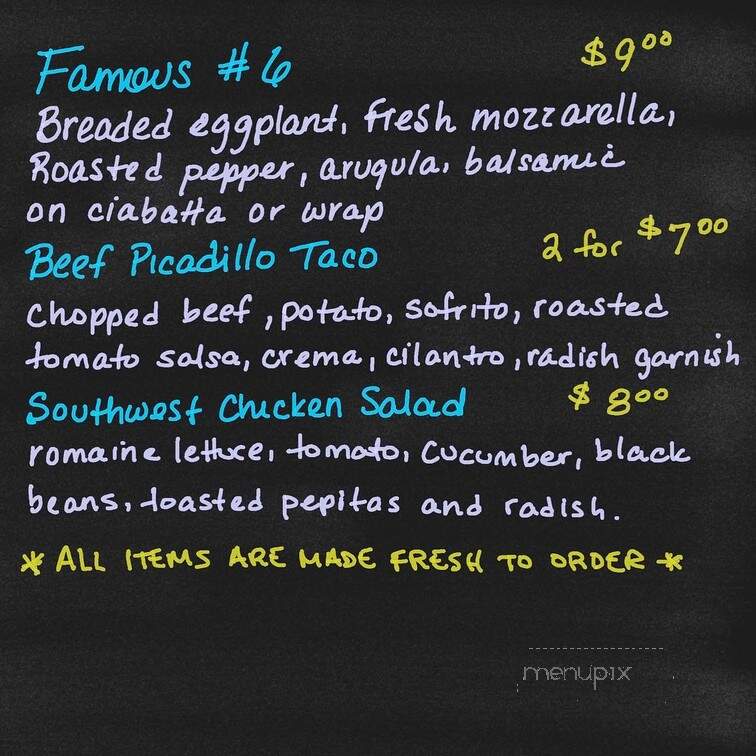 Famous #6 $9.00
Breaded eggplant, fresh mozzarella,
Roasted pepper, arugula, balsamic
on ciabatta or wrap
Beef Picadillo Taco 2 for $7.00
Chopped beef, potato, sofrito, roasted
tomato salsa, crema, cilantro, radish garnish
Southwest Chicken Salad $8.00
romaine lettuce, tomato, cucumber, black
beans, toasted pepitas and radish.
* ALL ITEMS ARE MADE FRESH TO ORDER *
menupix